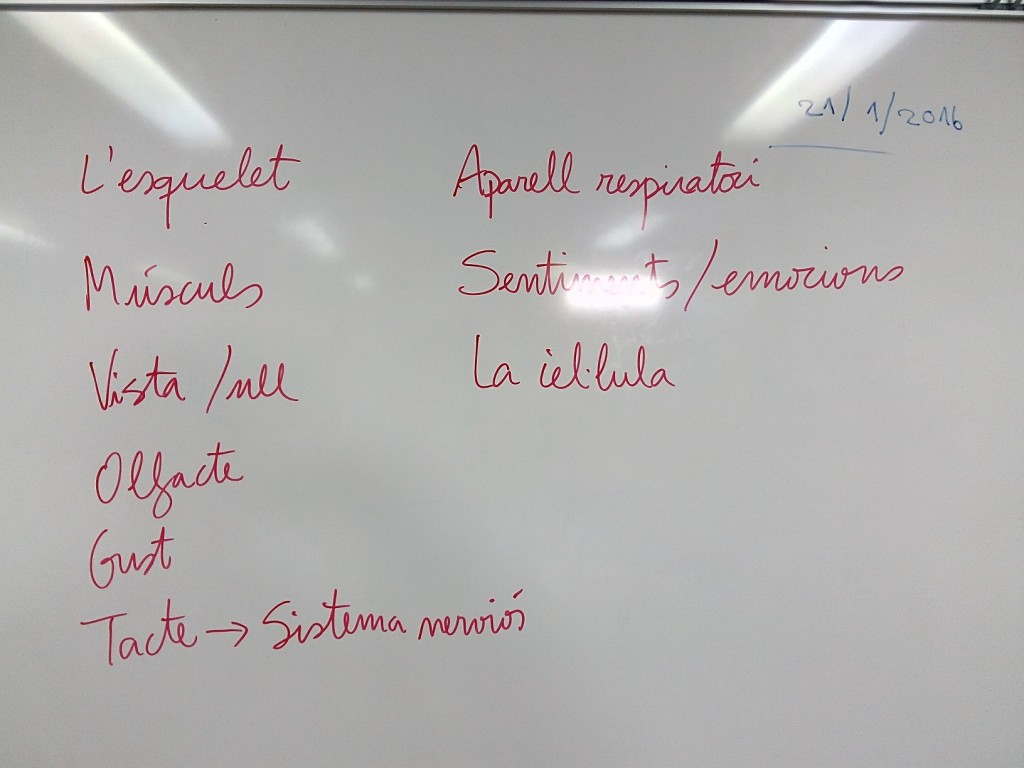 21/1/2016
L'esquelet
Músculs
Vista/ull
Olfacte
Gust
Tacte → Sistema nerviós
Aparell respiratori
Sentiments/emocions
La cèl·lula